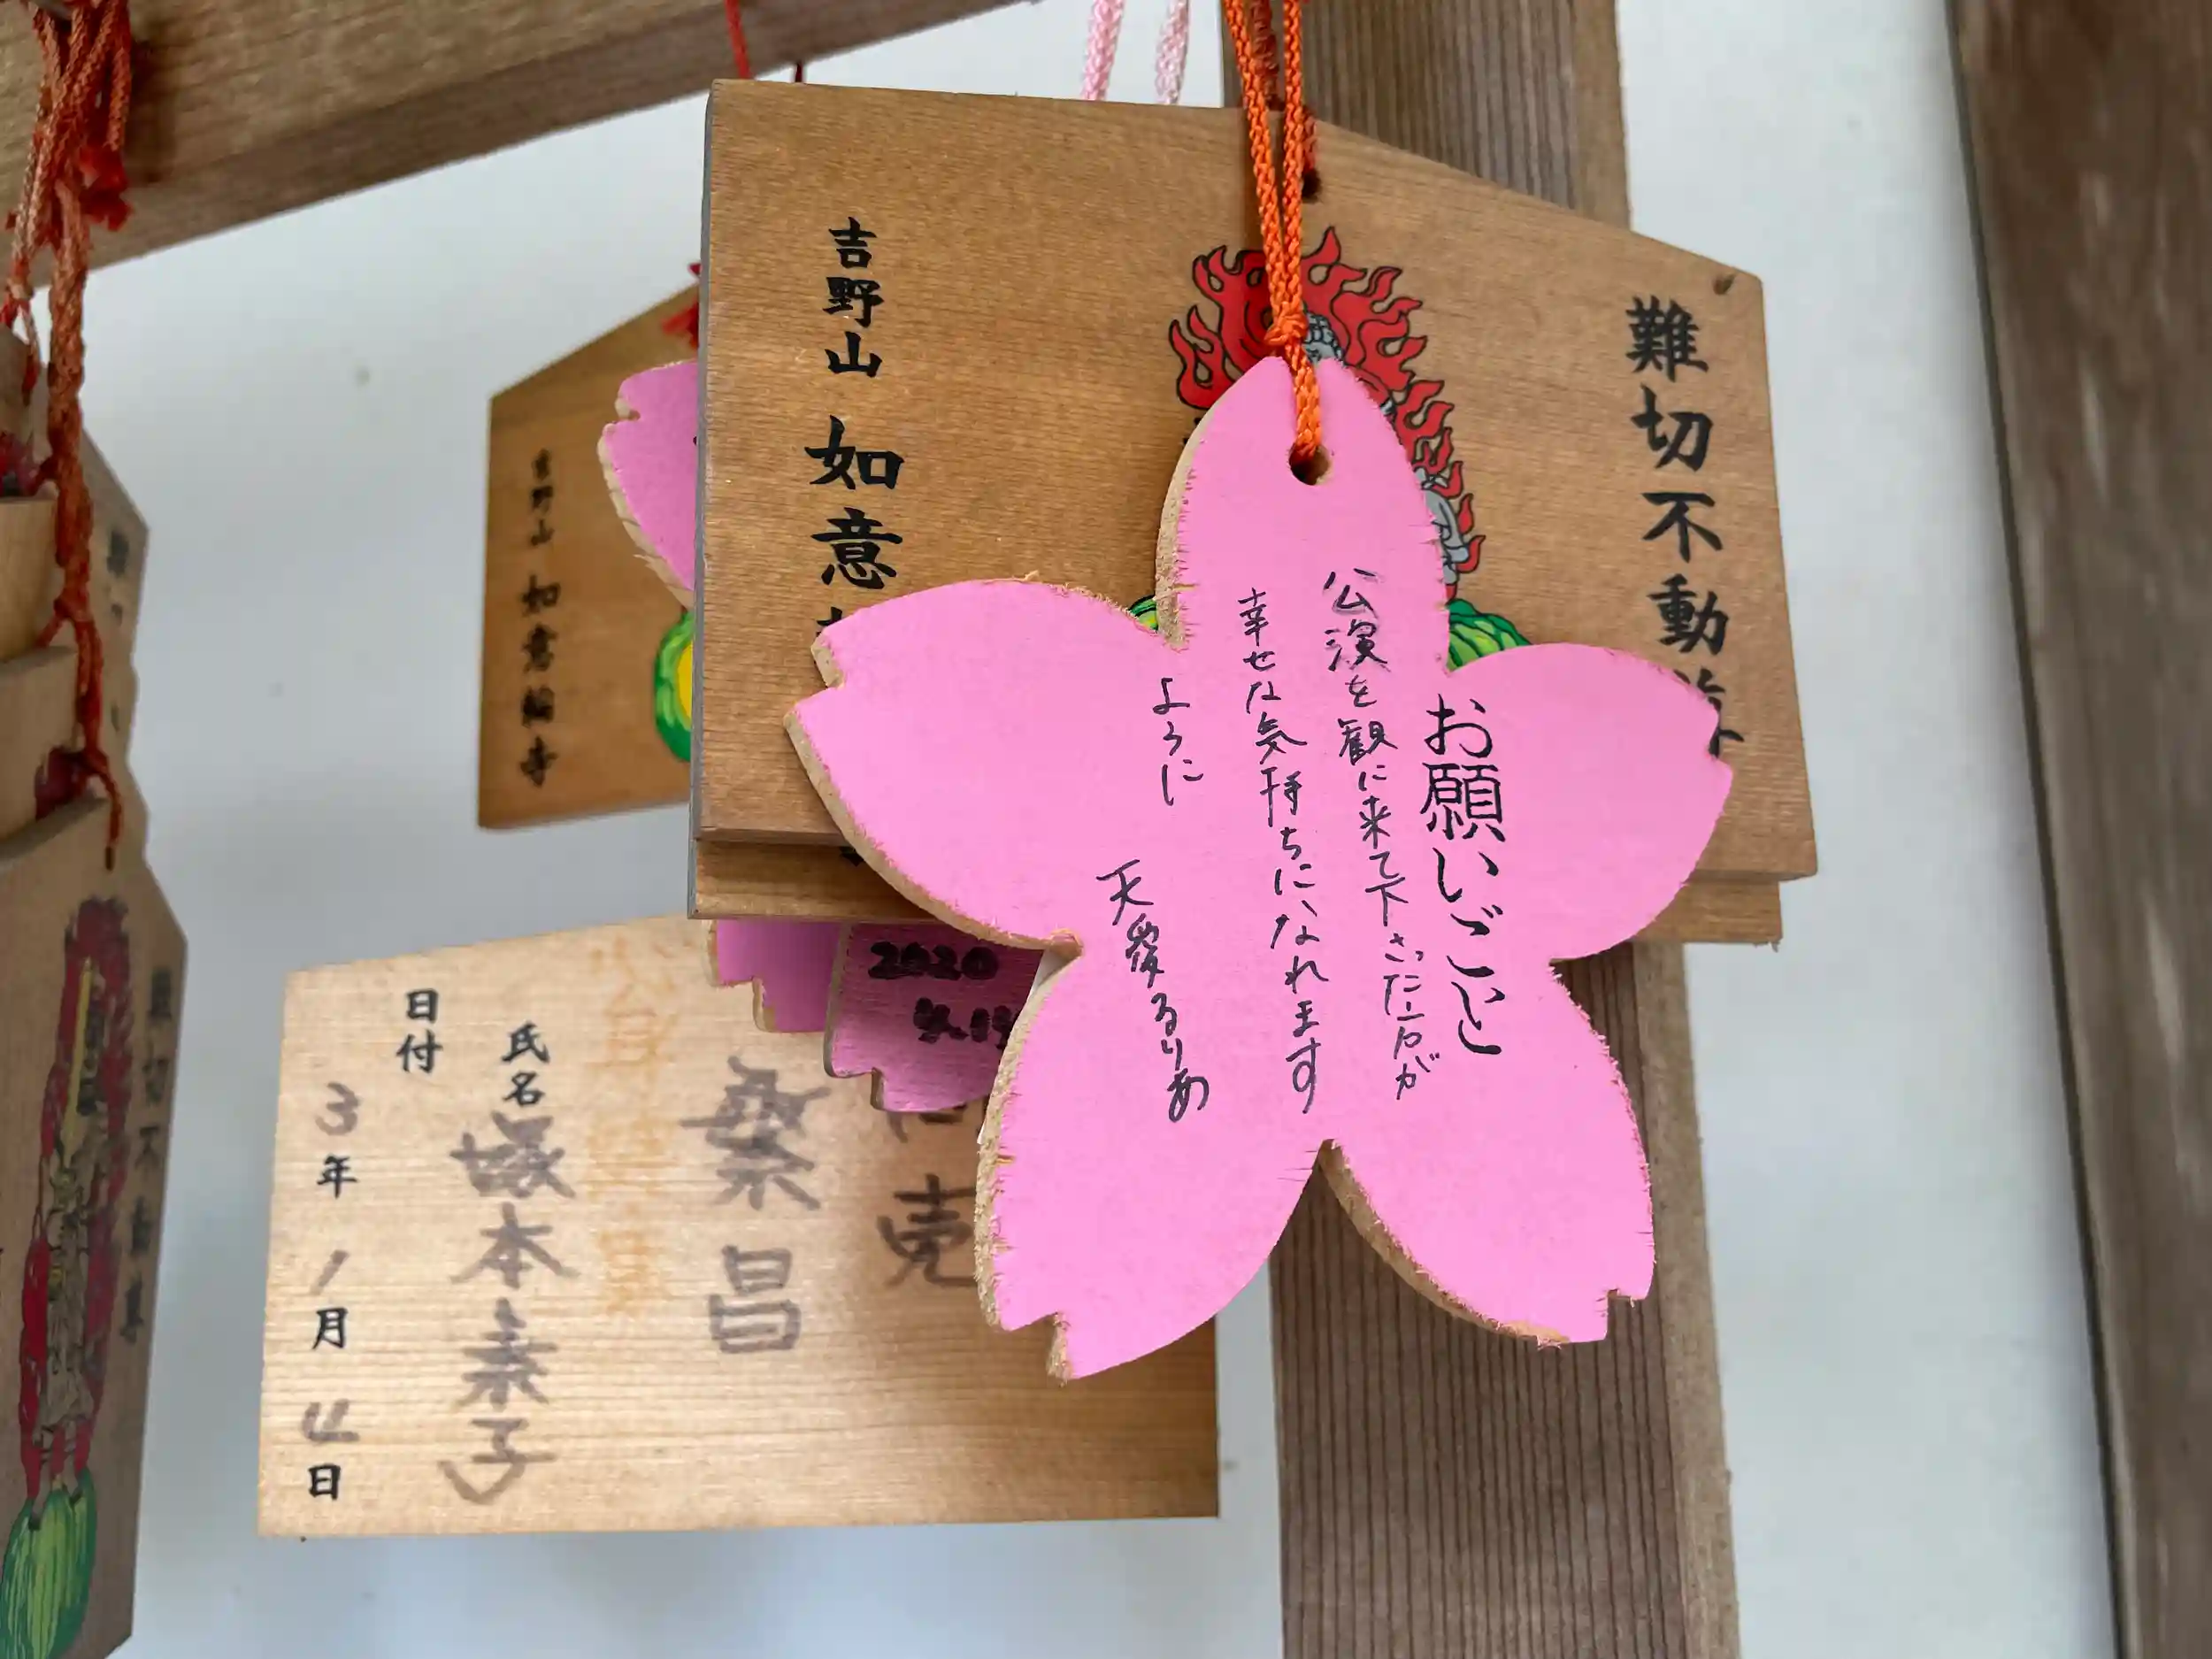 お願いごと
公演を観に来て下さった方が
幸せな気持ちになれます
ように
天愛るりあ
難切不動尊
吉野山 如意
吉野山 如意輪寺
2020
売
繁昌
氏名
塚本素子
日付
3年1月4日